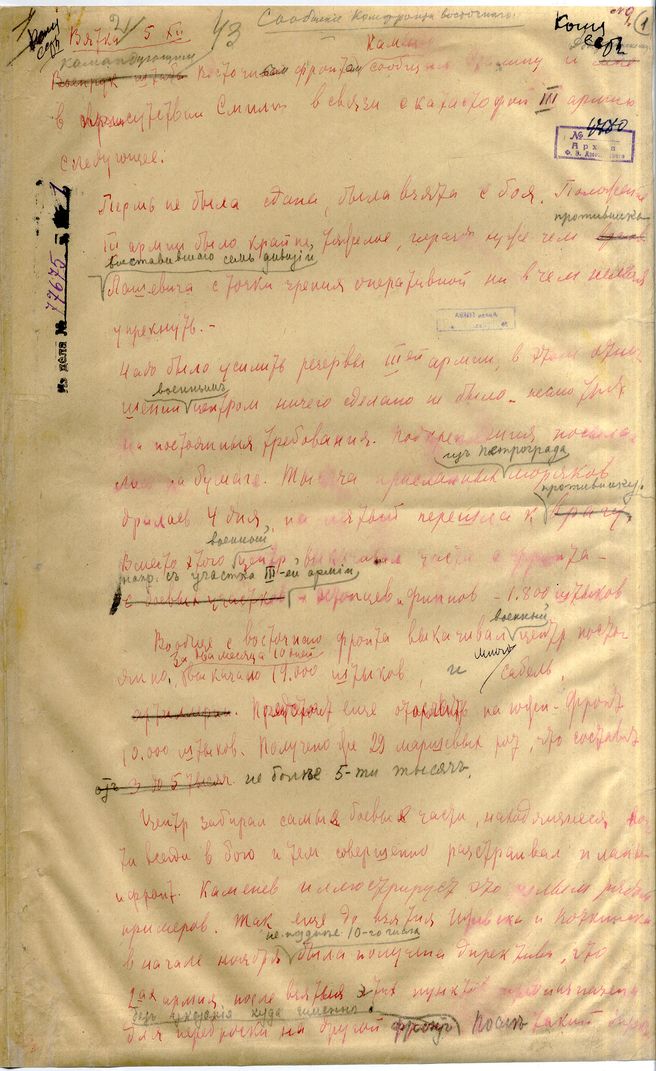 Сообщение Комфронта восточного.
Вятка 5
Копия
командующий
Восточным фронтом сообщил
в присутствии Смилги в связи с катастрофой III армии
следующее:
Архив
Из дела № 77675
Пермь не была сдана, была взята с боя. Положение
противника
III армии было крайне тяжелое, гораздо хуже чем
выставившего семь дивизий
Лашевича с точки зрения оперативной ни в чем нельзя
упрекнуть. —
Надо было усилить резервы III ей армии, в этом отно-
военным
шении центром ничего сделано не было
на постоянные требования. Подкрепления посыла-
из Петрограда
лись на бумаге. Тысяча присланных моряков
противнику.
дралась 4 дня, на пятый перешла к врагу.
военный
Вместо этого центр выкачивал части с фронта —
напр. съ участка III-ей армiи
с боевых участков эстонцев и финнов — 1.800 штыков
военный
Вообще с восточного фронта выкачивал центр посто-
За два месяца 10 дней
много
янно. Выкачано 19.000 штыков, и сабель,
Предстоит еще отправить на южн. фронт
10.000 штыков. Получено же 29 маршевых рот, что составит
от 3 до 5 тысяч. не более 5-ти тысячъ.
Центр забирал самые боевые части, находящиеся поч-
ти всегда в бою и тем совершенно расстраивал планы
и фронт. Каменев иллюстрирует это целым рядом
примеров. Так еще до взятия Ижевска и Воткинска
не позднее 10-го числа
в начале ноября была получена директива, что
2ая армия после взятия этих пунктов предназначена
без указания куда именно.
для переброски на другой фронт. После такой